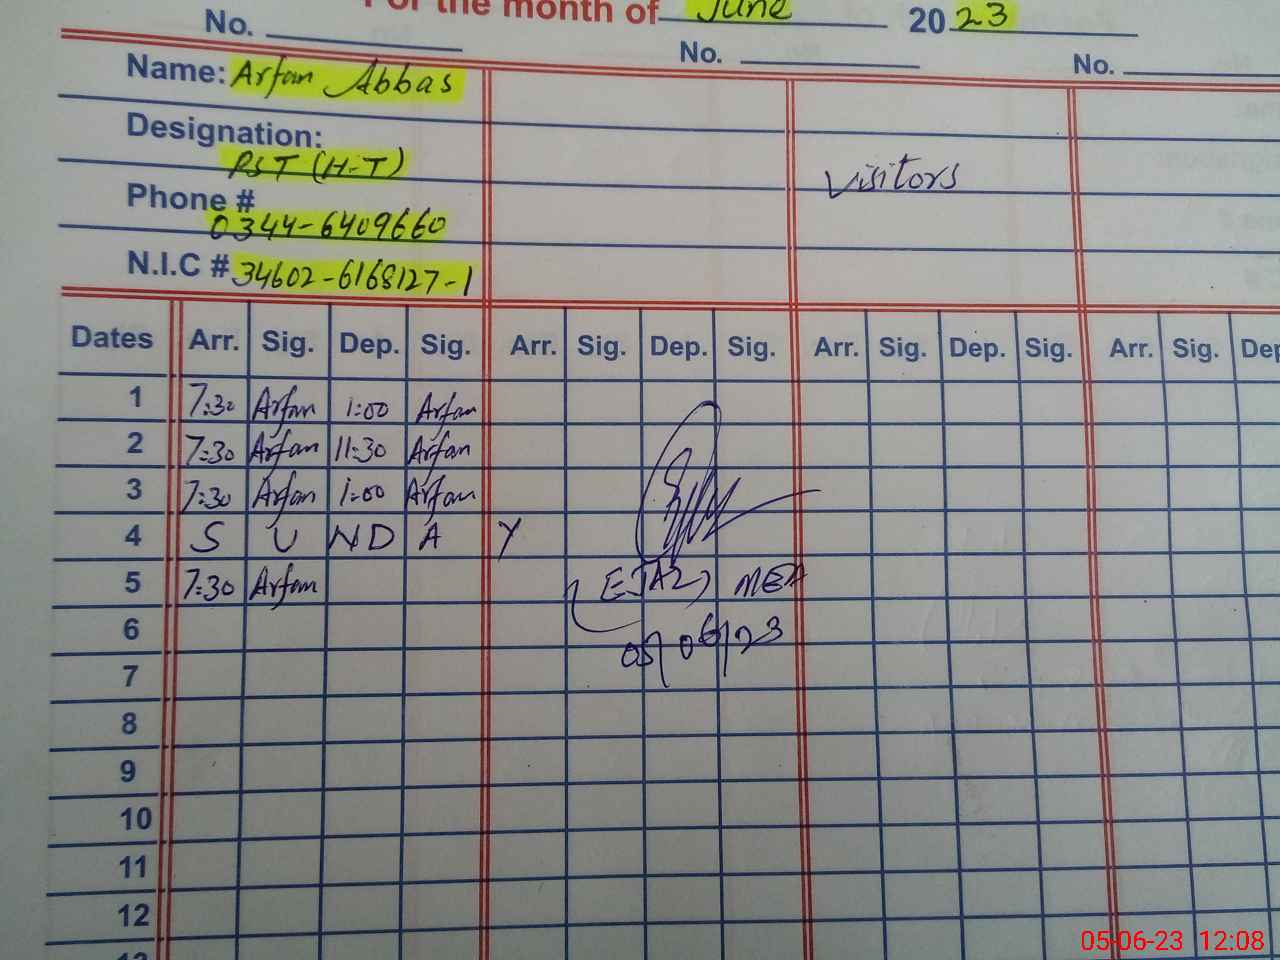 For the month of June 2023
No. No. No.
Name: Arfan Abbas
Designation:
PST (H-T)
Visitors
Phone #
0344-6409660
N.I.C # 34602-6168127-1
Dates Arr. Sig. Dep. Sig. Arr. Sig. Dep. Sig. Arr. Sig. Dep. Sig. Arr. Sig. Dep
1 7:30 Arfan 1:00 Arfan
2 7:30 Arfan 11:30 Arfan
3 7:30 Arfan 1:00 Arfan
4 S U N D A Y
5 7:30 Arfan (EJAZ) MEA
6 05/06/23
7
8
9
10
11
12
13
05-06-23 12:08